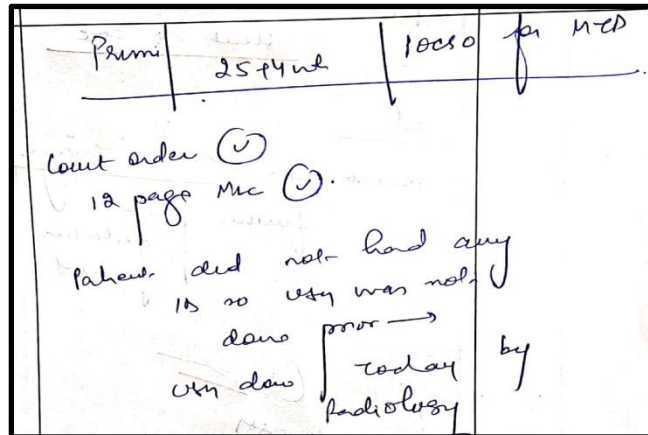 Primi 25+4wk POCSO for MTP
Court order ✓
12 page MLC ✓.
Patient did not had any
ID so USG was not
done prior →
USG done today by
Radiology